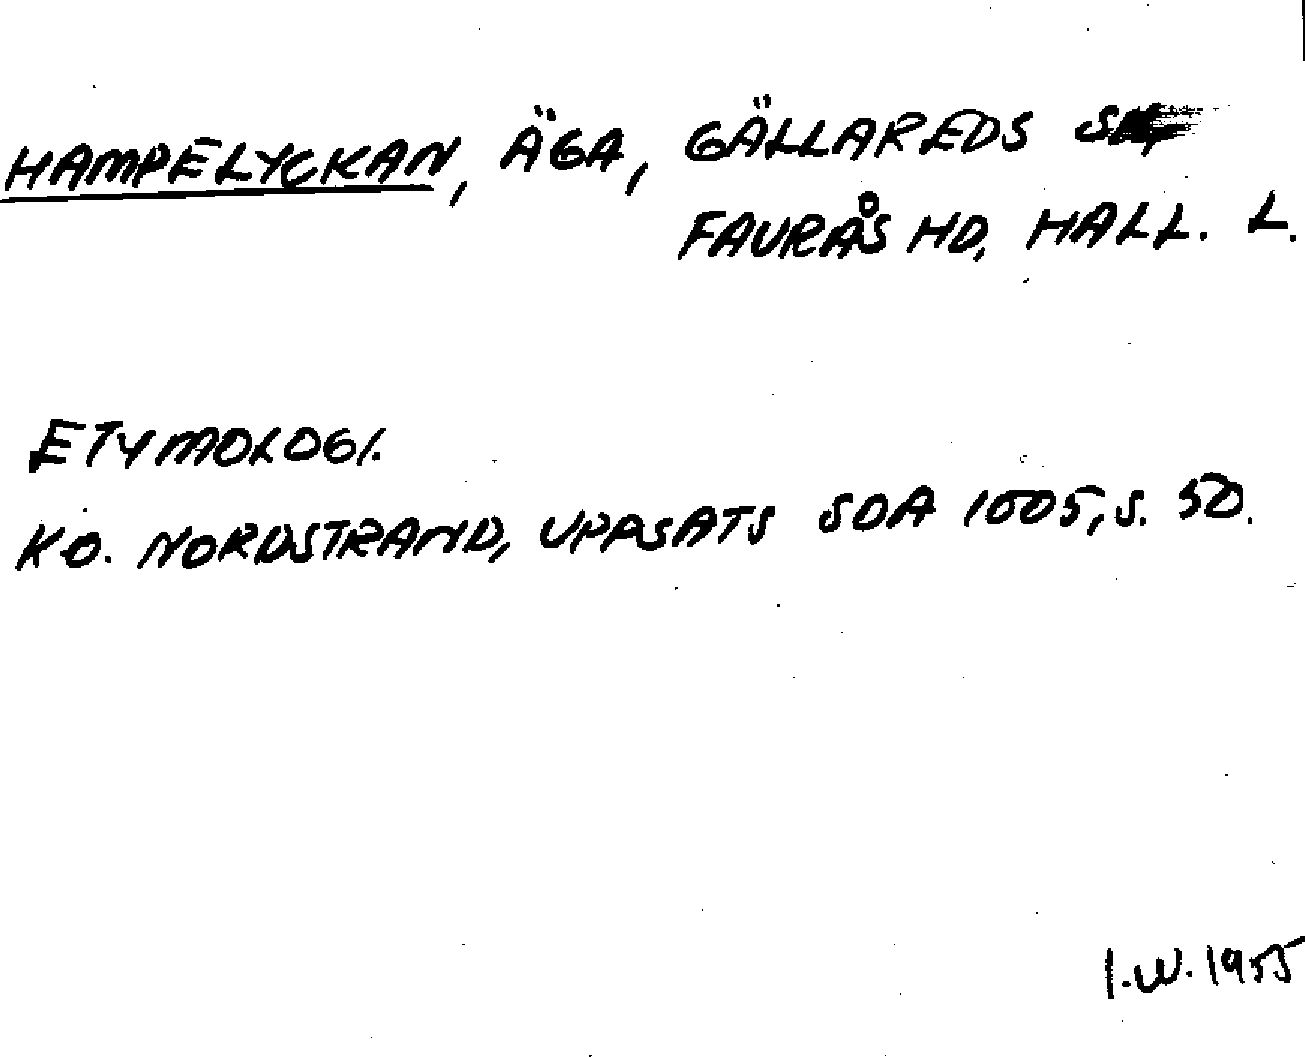 HAMPELYCKAN, ÄGA, GÄLLAREDS SN,
FAURÅS HD, HALL. L.
ETYMOLOGI.
K O. NORDSTRAND, UPPSATS SOA 1005, S. 50.
I.W. 1955